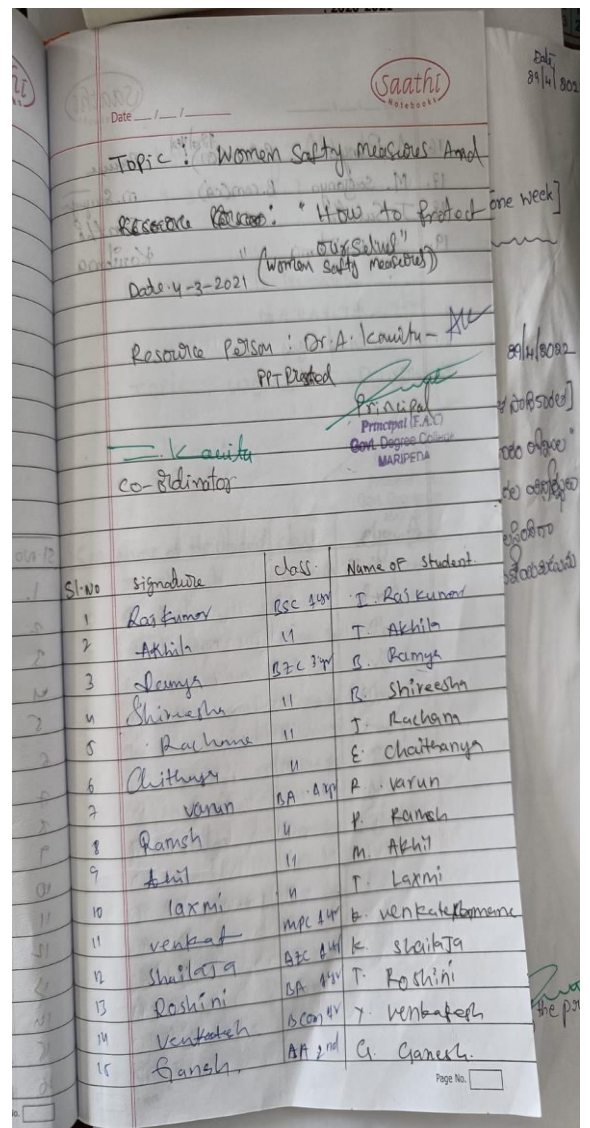 Saathi
Notebooks
Date __/__/__
Date
29/4/202
Topic : "Women Safty measures And
Resource Person : "How to Protect
ourselves"
one week]
Date: 4-3-2021 (women Safty measures)
Resource Person : Dr. A. Kavitu -
29/4/2022
PPT
Principal
Principal (F.A.C)
Govt. Degree College
MARIPEDA
Kavitu
co-ordinator
Sl.No signature class Name of student.
1 Rajkumar BSC 1yr I. Rajkumar
2 Akhila 11 T. Akhila
3 Ramya BZC 3yr B. Ramya
4 Shireesha 11 B. Shireesha
5 Rachana 11 J. Rachana
6 Chithanya 11 E. Chaithanya
7 varun BA 1yr R. varun
8 Ramsh 11 P. Ramsh
9 Akhil 11 M. Akhil
10 laxmi 11 T. Laxmi
11 venkat MPC 1yr
12 Shailaja BZC 1yr K. Shailaja
13 Roshini BA 1yr T. Roshini
14 Venkatesh BCom Y. venkatesh
15 Gansh. BA 2nd G. Ganesh.
the pr
Page No.